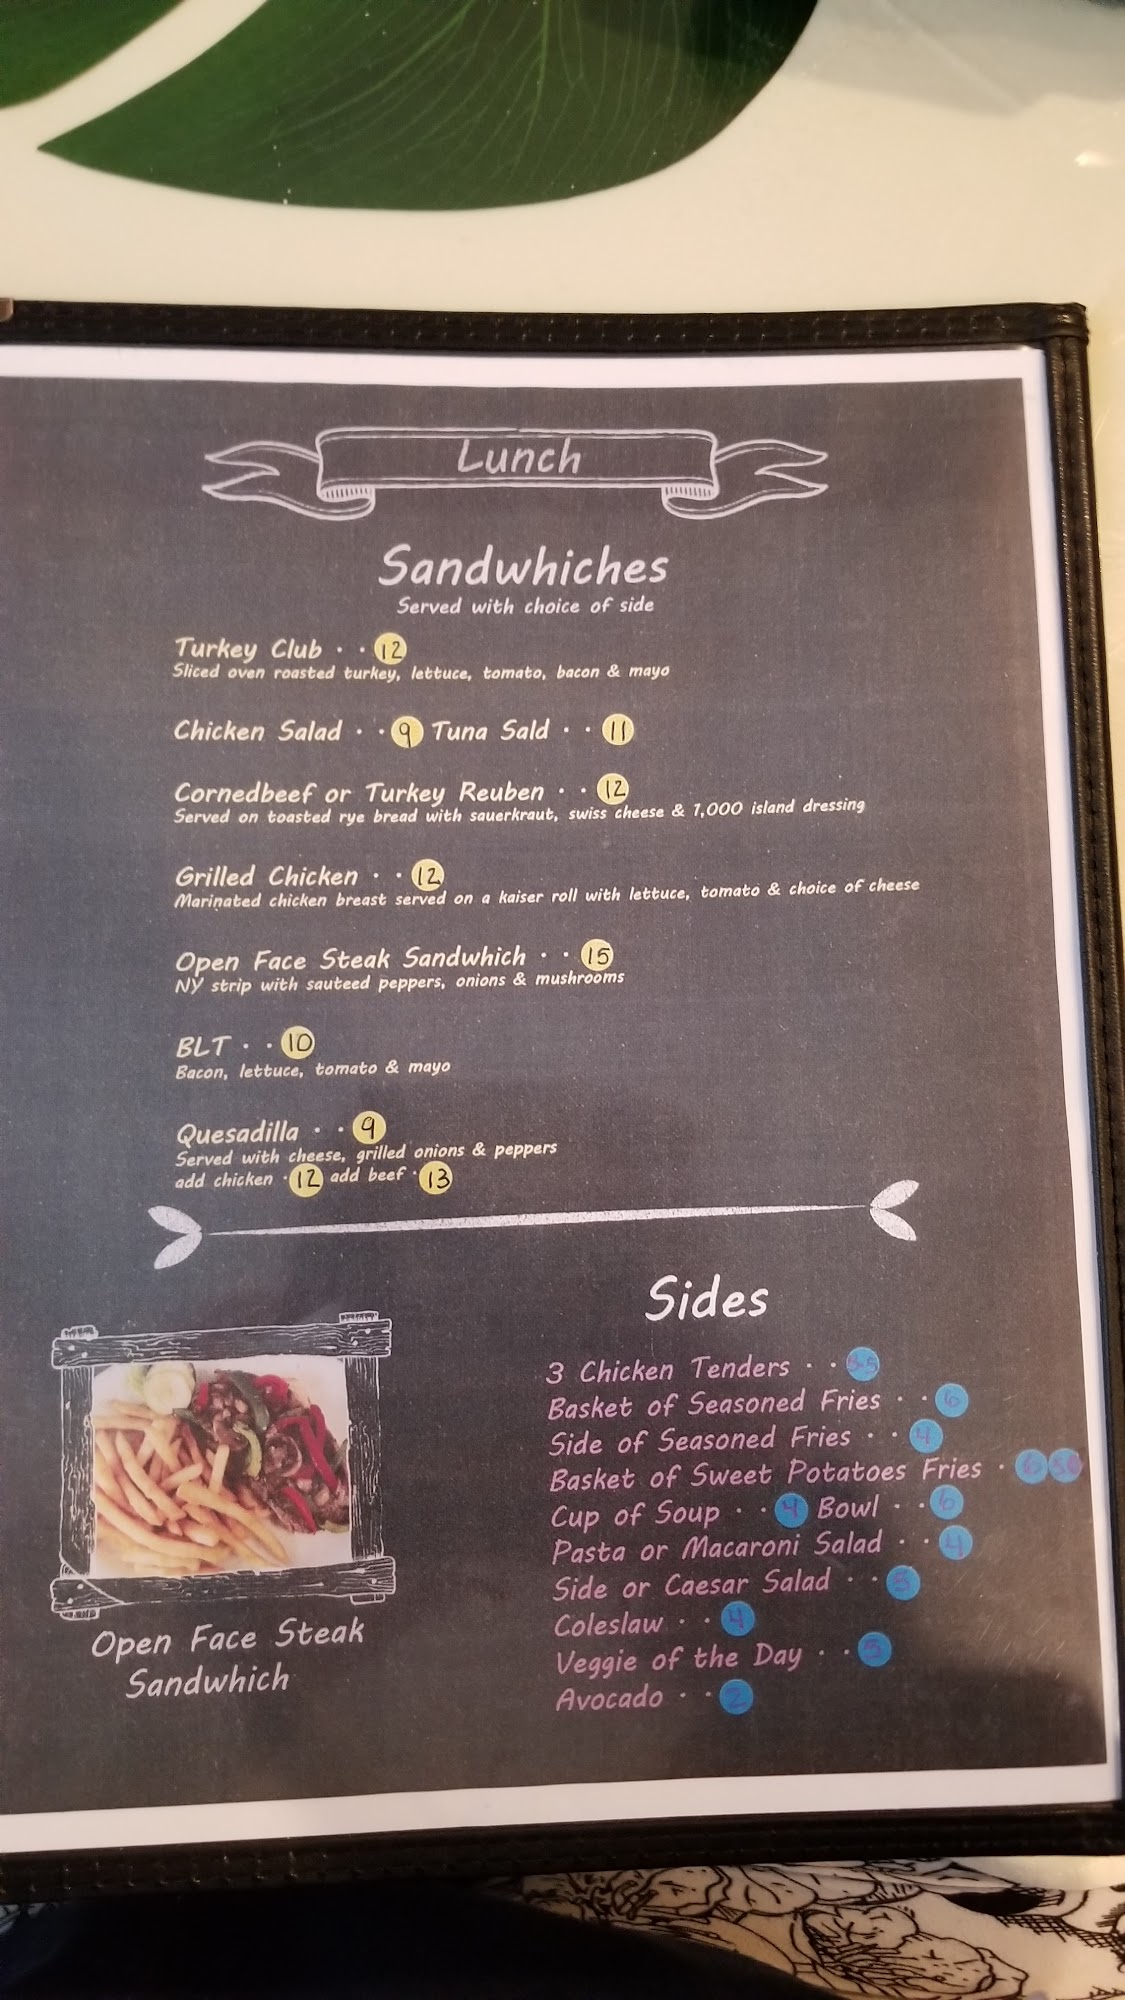 Lunch
Sandwhiches
Served with choice of side
Turkey Club · · 12
Sliced oven roasted turkey, lettuce, tomato, bacon & mayo
Chicken Salad · · 9 Tuna Sald · · 11
Cornedbeef or Turkey Reuben · · 12
Served on toasted rye bread with sauerkraut, swiss cheese & 1,000 island dressing
Grilled Chicken · · 12
Marinated chicken breast served on a kaiser roll with lettuce, tomato & choice of cheese
Open Face Steak Sandwhich · · 15
NY strip with sauteed peppers, onions & mushrooms
BLT · · 10
Bacon, lettuce, tomato & mayo
Quesadilla · · 9
Served with cheese, grilled onions & peppers
add chicken · 12 add beef · 13
Sides
3 Chicken Tenders · ·
Basket of Seasoned Fries · · 6
Side of Seasoned Fries · · 4
Basket of Sweet Potatoes Fries · 6
Cup of Soup · · 4 Bowl · · 6
Pasta or Macaroni Salad · · 4
Side or Caesar Salad · · 5
Coleslaw · · 4
Veggie of the Day · ·
Avocado · · 2
Open Face Steak
Sandwhich